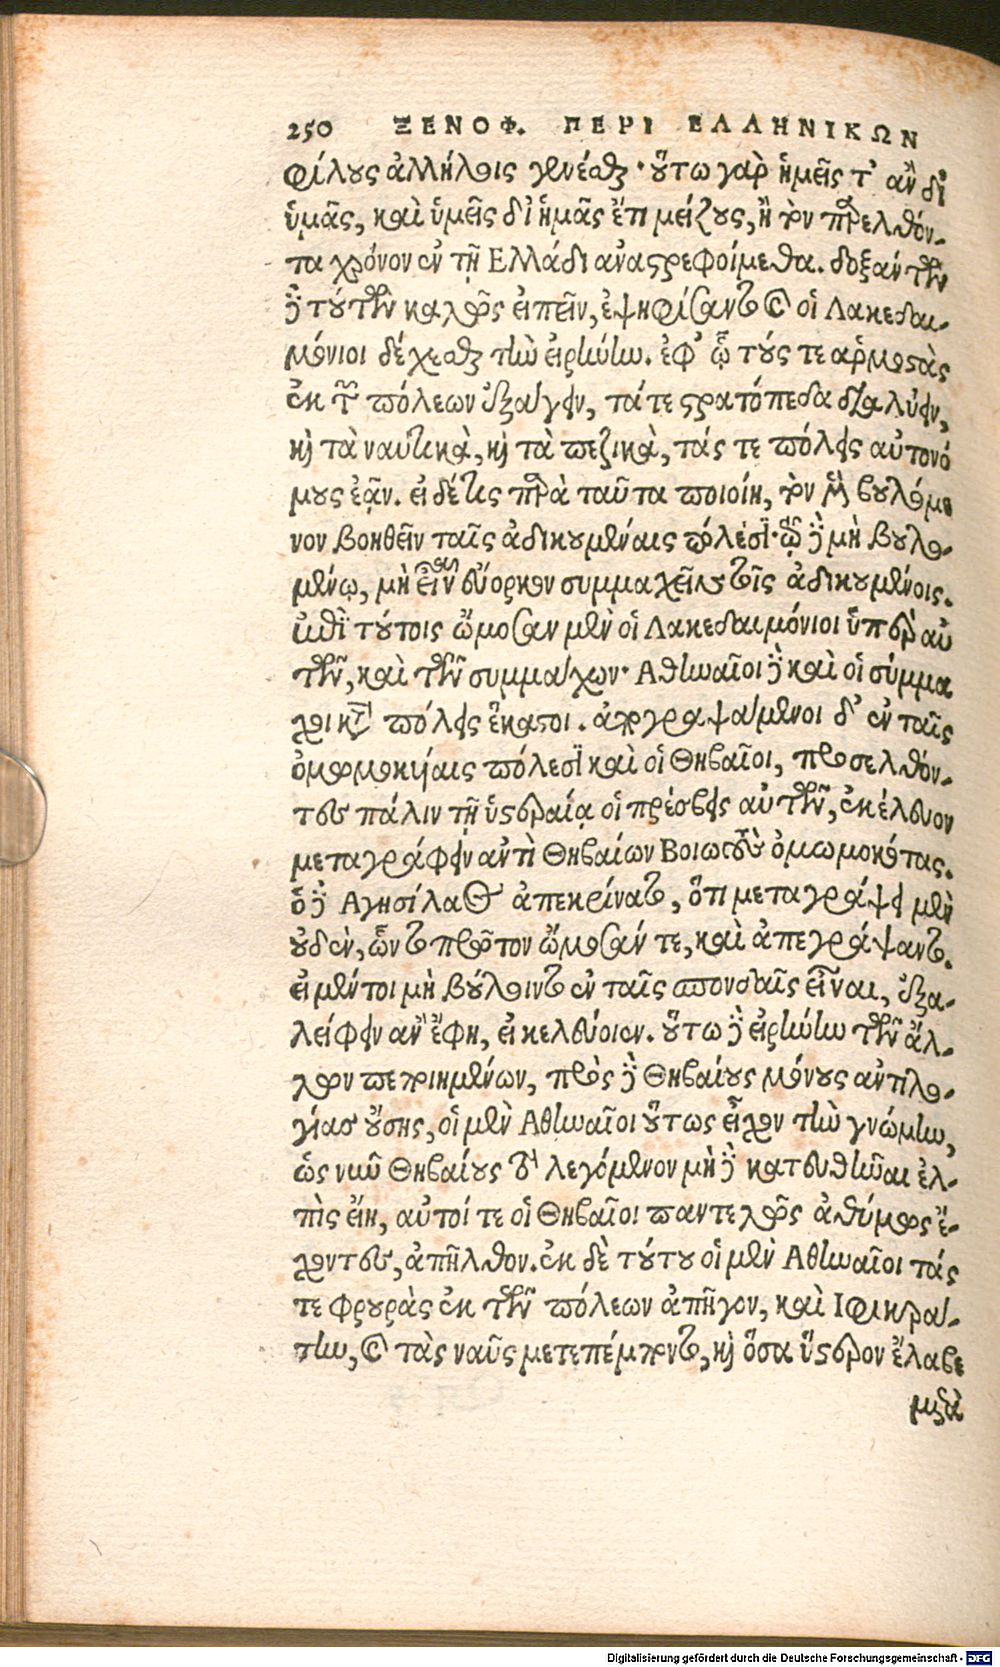 250 ΞΕΝΟΦ. ΠΕΡΙ ΕΛΛΗΝΙΚΩΝ
φίλους ἀλλήλοις γενέσθαι· οὕτω γὰρ ἡμεῖς τ' ἂν δι'
ὑμᾶς, καὶ ὑμεῖς δι' ἡμᾶς ἔτι μείζους, ἢ τὸν παρελθόν-
τα χρόνον ἐν τῇ Ἑλλάδι ἀναστρεφοίμεθα. δοξάντων
δὲ τούτων καλῶς εἰπεῖν, ἐψηφίσαντο καὶ οἱ Λακεδαι-
μόνιοι δέχεσθαι τὴν εἰρήνην. ἐφ' ᾧ τούς τε ἁρμοστὰς
ἐκ τῶν πόλεων ἐξάγειν, τά τε στρατόπεδα διαλύειν,
καὶ τὰ ναυτικὰ, καὶ τὰ πεζικὰ, τάς τε πόλεις αὐτονό
μους ἐᾷν. εἰ δέ τις παρὰ ταῦτα ποιοίη, τὸν μὲν βουλόμε
νον βοηθεῖν ταῖς ἀδικουμέναις πόλεσι· τῷ δὲ μὴ βουλο-
μένῳ, μὴ εἶναι εὔορκον συμμαχεῖν τοῖς ἀδικουμένοις.
ἐπὶ τούτοις ὤμοσαν μὲν οἱ Λακεδαιμόνιοι ὑπὲρ αὑ
τῶν, καὶ τῶν συμμάχων· Ἀθηναῖοι δὲ καὶ οἱ σύμμα
χοι κατὰ πόλεις ἕκαστοι. ἀπογραψάμενοι δ' ἐν ταῖς
ὀμωμοκυίαις πόλεσι καὶ οἱ Θηβαῖοι, προσελθόν-
τες πάλιν τῇ ὑστεραίᾳ οἱ πρέσβεις αὐτῶν, ἐκέλευον
μεταγράφειν ἀντὶ Θηβαίων Βοιωτοὺς ὀμωμοκότας.
ὁ δὲ Ἀγησίλαος ἀπεκρίνατο, ὅτι μεταγράψει μὲν
οὐδὲν, ὧν τὸ πρῶτον ὤμοσάν τε, καὶ ἀπεγράψαντο.
εἰ μέντοι μὴ βούλοιντο ἐν ταῖς σπονδαῖς εἶναι, ἐξα-
λείφειν ἂν ἔφη, εἰ κελεύοιεν. οὕτω δὲ εἰρήνην τῶν ἄλ-
λων πεποιημένων, πρὸς δὲ Θηβαίους μόνους ἀντιλο-
γίας οὔσης, οἱ μὲν Ἀθηναῖοι οὕτως εἶχον τὴν γνώμην,
ὡς νῦν Θηβαίους τὸ λεγόμενον μὴ δὲ κατευθῆναι ἐλ-
πὶς εἴη, αὐτοί τε οἱ Θηβαῖοι παντελῶς ἀθύμως ἔ-
χοντες, ἀπῆλθον. ἐκ δὲ τούτου οἱ μὲν Ἀθηναῖοι τάς
τε φρουρὰς ἐκ τῶν πόλεων ἀπῆγον, καὶ Ἰφικρά-
την, καὶ τὰς ναῦς μετεπέμποντο, καὶ ὅσα ὕστερον ἔλαβε
μετὰ
Digitalisierung gefördert durch die Deutsche Forschungsgemeinschaft - DFG